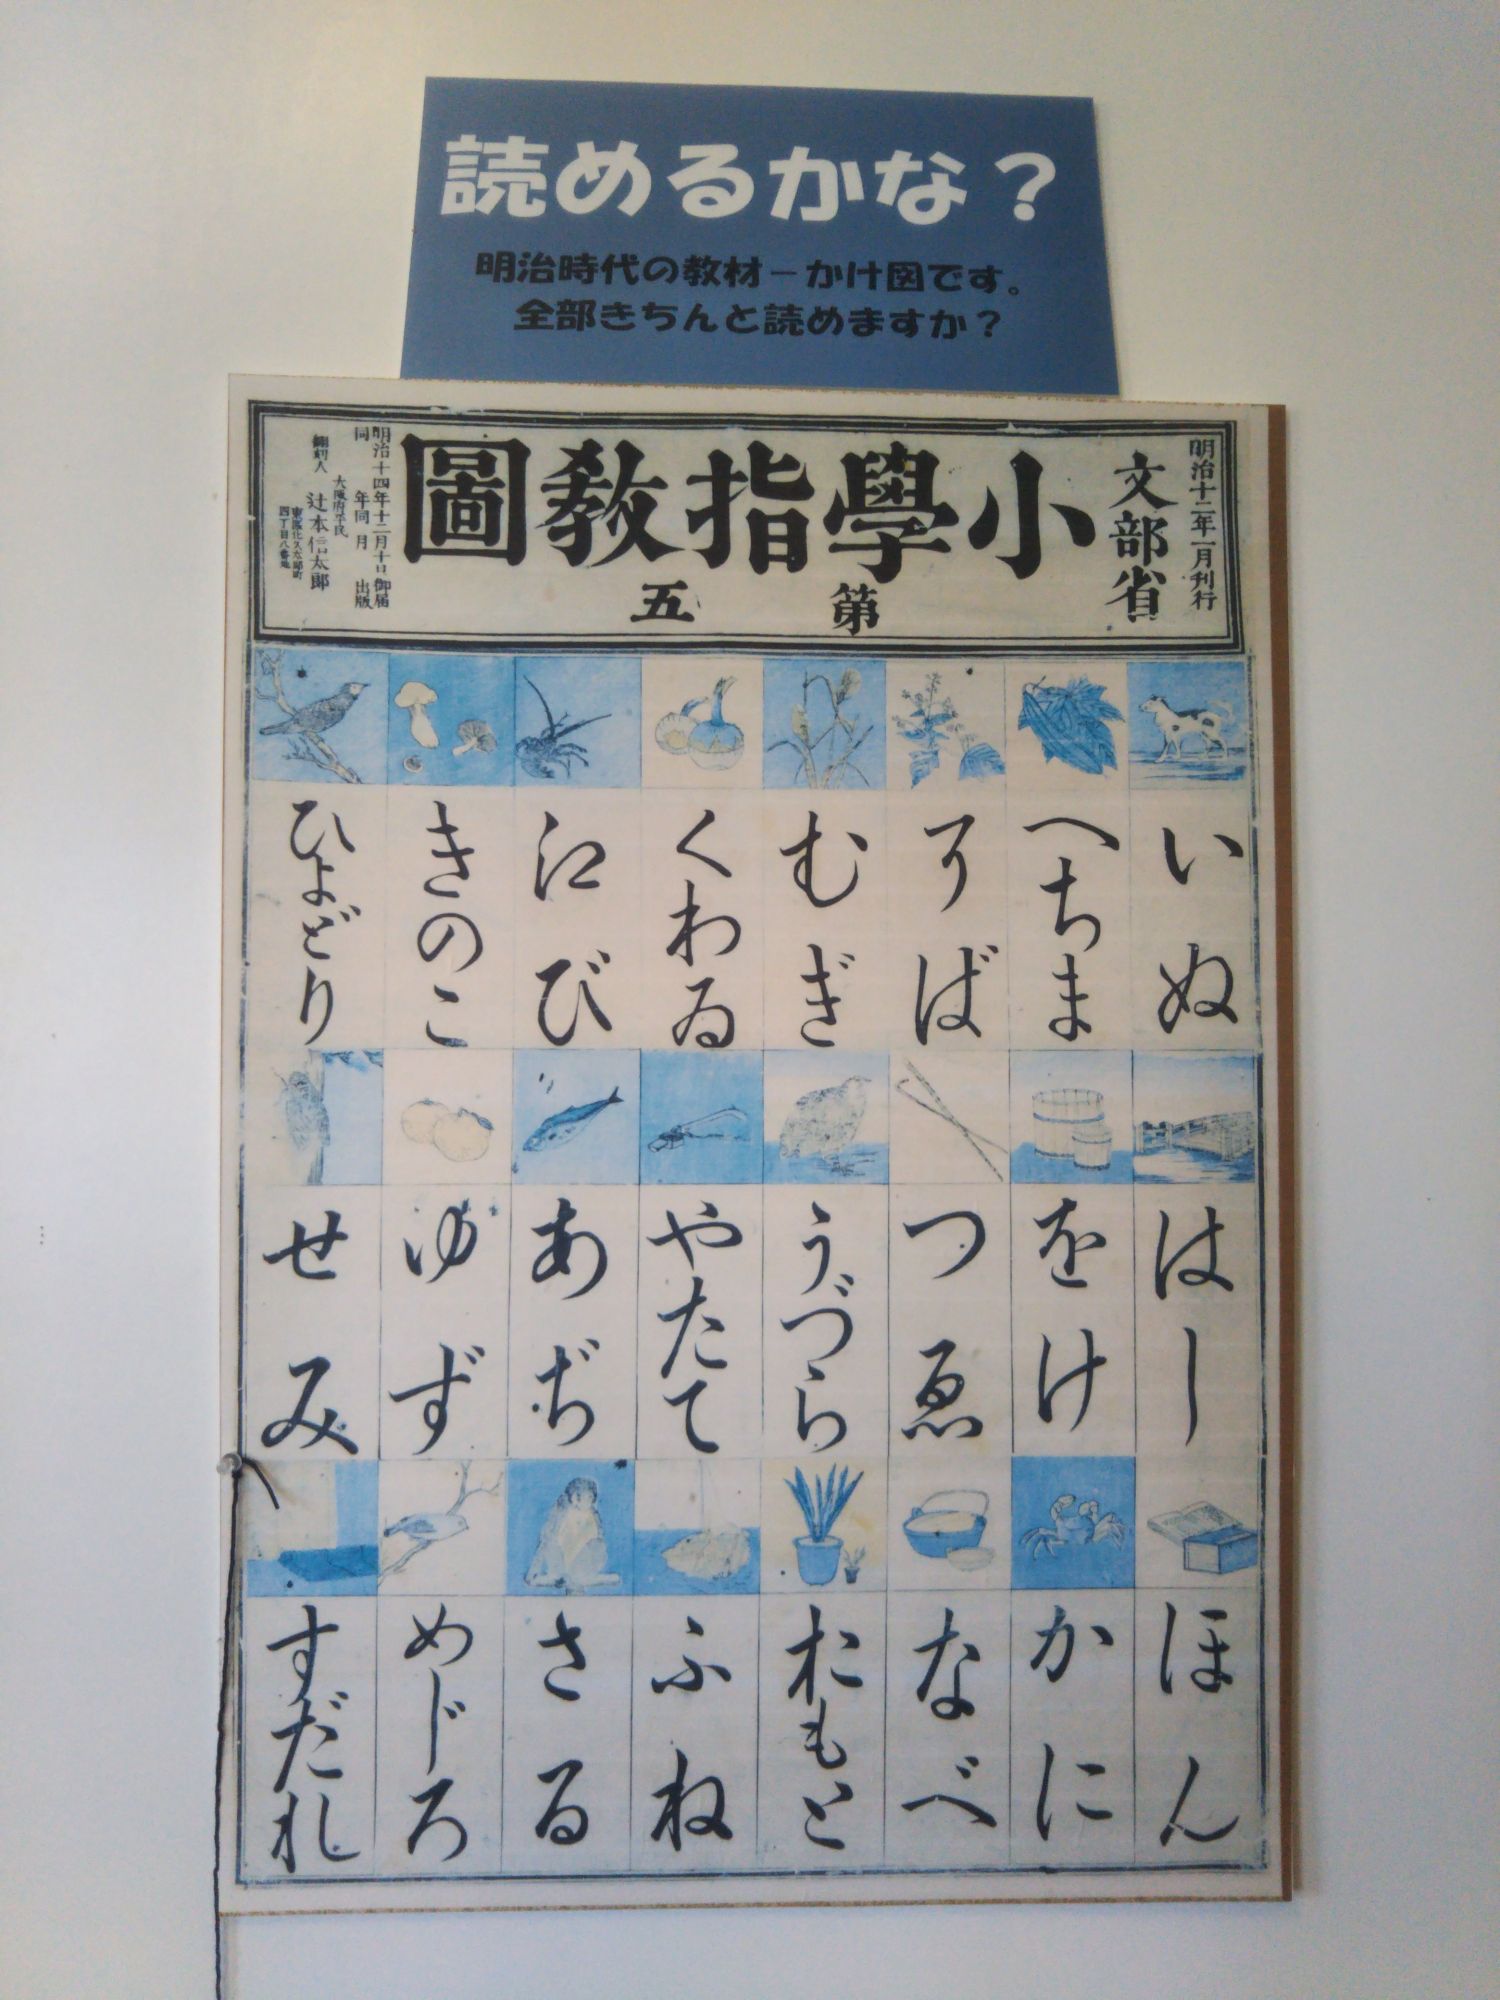 読めるかな？
明治時代の教材－かけ図です。
全部きちんと読めますか？
明治十二年一月刊行
文部省
小學指教圖
第五
明治十四年十二月十日御届
同年同月出版
大阪府平民
翻刻人 辻本信太郎
東區北久太郎町
四丁目八番地
いぬ
へちま
そば
むぎ
くわゐ
江び
きのこ
ひよどり
はし
をけ
つゑ
うづら
やたて
あぢ
ゆず
せみ
ほん
かに
なべ
おもと
ふね
さる
めじろ
すだれ